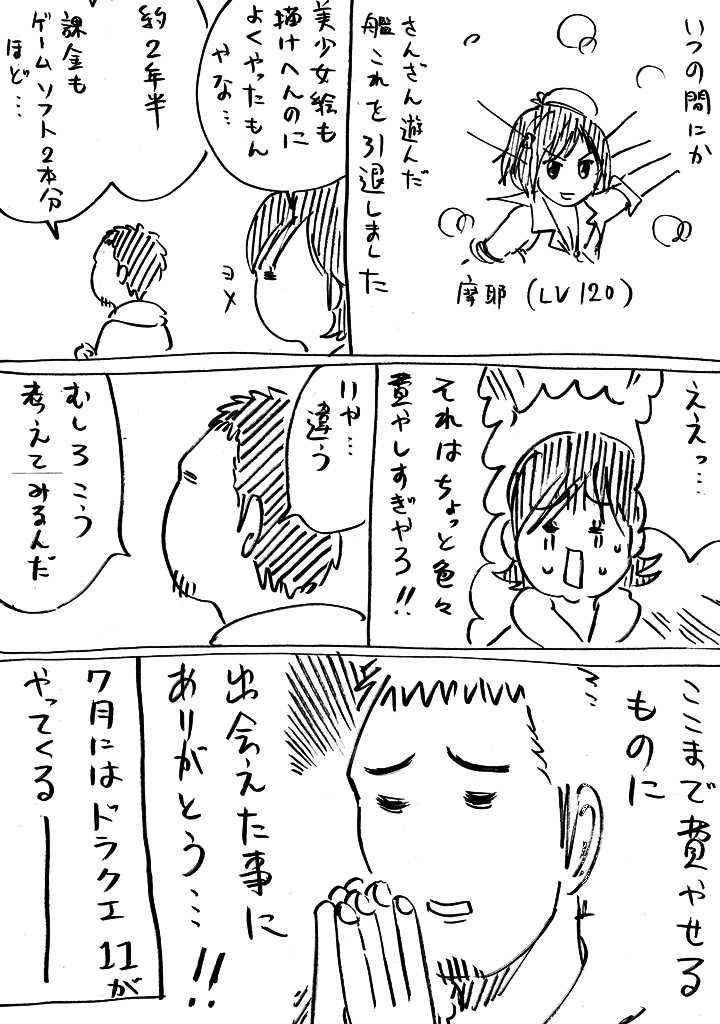 いつの間にか
さんざん遊んだ
艦これを引退しました
摩耶 (LV120)
美少女絵も
描けへんのに
よくやったもん
やな…
ヨメ
約2年半
課金も
ゲームソフト2本分
ほど…
ええっ…
それはちょっと色々
費やしすぎやろ!!
いや…
違う
むしろこう
考えてみるんだ
ここまで費やせる
ものに
出会えた事に
ありがとう…!!
7月にはドラクエ11が
やってくる――